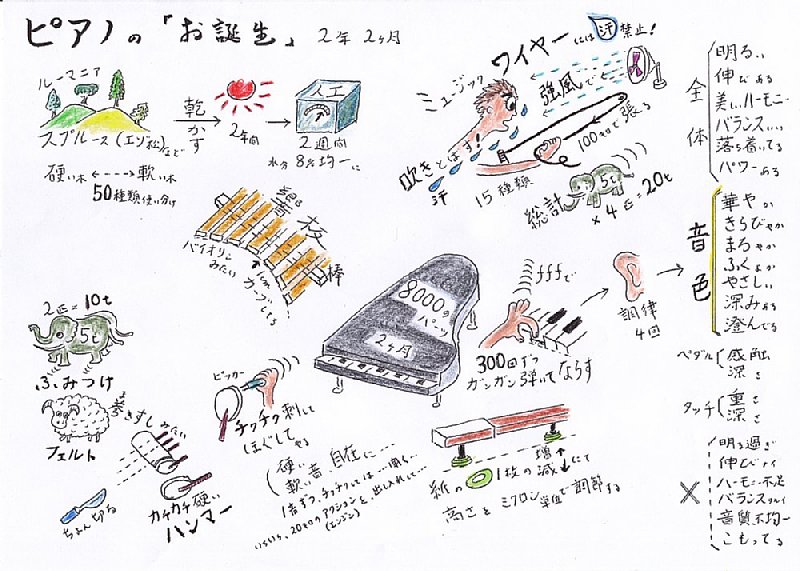 ピアノの「お誕生」 2年2ヶ月
ルーマニア
スプルース(エゾ松)など
乾かす
2年間
人工
2週間
水分8%均一に
硬い木 ←---→ 軟い木
50種類使い分け
ミュージック
ワイヤーには汗禁止!
強風で
吹きとばす!
汗
100kgで張る
15種類
5t
総計 × 4匹=20t
響板
バイオリンみたい
棒
カーブしてる
8000のパーツ
2ヶ月
fffで
300回ずつ
ガンガン弾いてならす
調律
4回
全体
明るい
伸びある
美しいハーモニー
バランスいい
落ち着いてる
パワーある
音色
華やか
きらびやか
まろやか
ふくよか
やさしい
深みある
澄んでる
ペダル
感触
深さ
タッチ
重さ
深さ
×
明る過ぎ
伸びナイ
ハーモニー不足
バランスワルイ
音質不均一
こもってる
2匹=10t
5t
ふみつけ
フェルト
巻きずしみたい
ちょん切る
カチカチ硬い
ハンマー
ピッカー
チクチク刺して
ほぐしてやる
硬い
軟い音 自在に……
紙の 1枚の増減にて
高さをミクロン単位で調節する